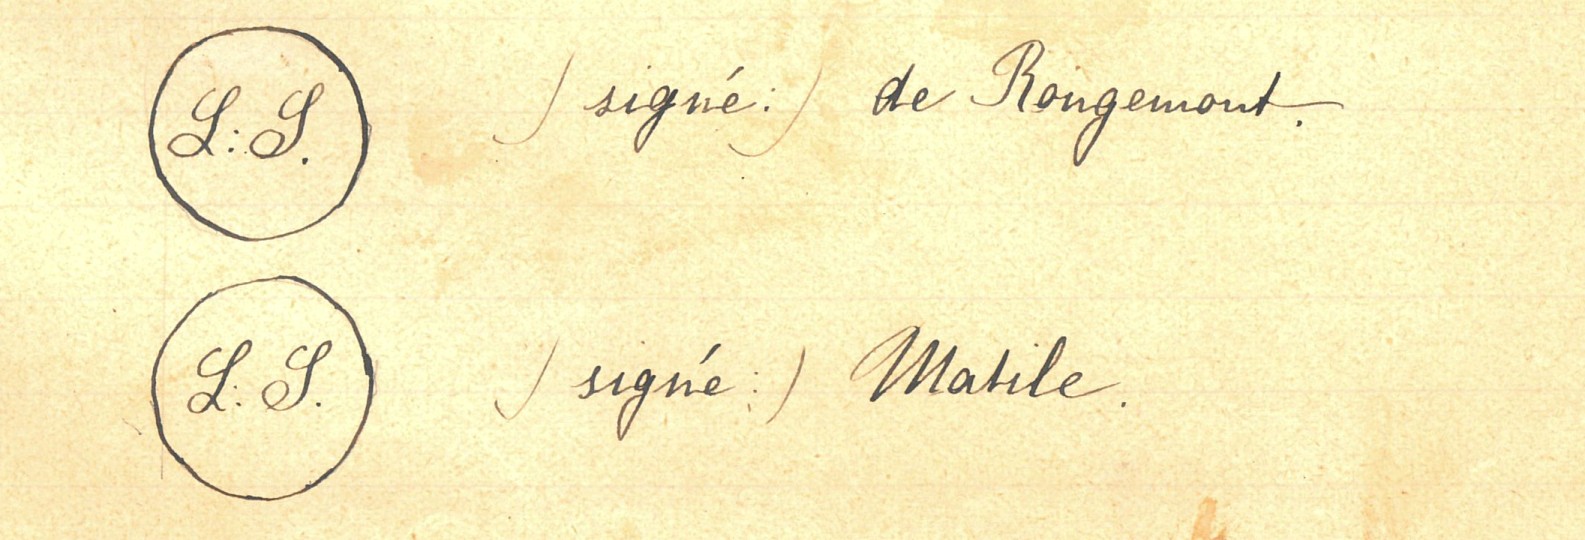 L: S. /signé:/ de Rougemont.
L: S. /signé:/ Matile.